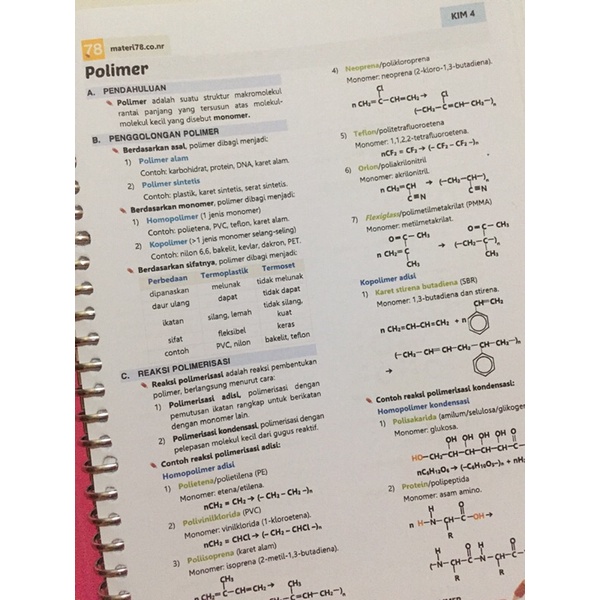 KIM 4
78 materi78.co.nr
Polimer
A. PENDAHULUAN
Polimer adalah suatu struktur makromolekul
rantai panjang yang tersusun atas molekul-
molekul kecil yang disebut monomer.
B. PENGGOLONGAN POLIMER
Berdasarkan asal, polimer dibagi menjadi:
1) Polimer alam
Contoh: karbohidrat, protein, DNA, karet alam.
2) Polimer sintetis
Contoh: plastik, karet sintetis, serat sintetis.
Berdasarkan monomer, polimer dibagi menjadi:
1) Homopolimer (1 jenis monomer)
Contoh: polietena, PVC, teflon, karet alam.
2) Kopolimer (>1 jenis monomer selang-seling)
Contoh: nilon 6,6, bakelit, kevlar, dakron, PET.
Berdasarkan sifatnya, polimer dibagi menjadi:
Perbedaan Termoplastik Termoset
dipanaskan melunak tidak melunak
daur ulang dapat tidak dapat
ikatan silang, lemah tidak silang,
kuat
sifat fleksibel keras
contoh PVC, nilon bakelit, teflon
C. REAKSI POLIMERISASI
Reaksi polimerisasi adalah reaksi pembentukan
polimer, berlangsung menurut cara:
1) Polimerisasi adisi, polimerisasi dengan
pemutusan ikatan rangkap untuk berikatan
dengan monomer lain.
2) Polimerisasi kondensasi, polimerisasi dengan
pelepasan molekul kecil dari gugus reaktif.
Contoh reaksi polimerisasi adisi:
Homopolimer adisi
1) Polietena/polietilena (PE)
Monomer: etena/etilena.
nCH₂ = CH₂ → (– CH₂ – CH₂ –)ₙ
2) Polivinilklorida (PVC)
Monomer: vinilklorida (1-kloroetena).
nCH₂ = CHCl → (– CH₂ – CHCl –)ₙ
3) Poliisoprena (karet alam)
Monomer: isoprena (2-metil-1,3-butadiena).
CH₃ CH₃
n CH₂=C–CH=CH₂ → (–CH₂–C=CH–CH₂–)ₙ
4) Neoprena/polikloroprena
Monomer: neoprena (2-kloro-1,3-butadiena).
Cl Cl
n CH₂=C–CH=CH₂ → (–CH₂–C=CH–CH₂–)ₙ
5) Teflon/politetrafluoroetena
Monomer: 1,1,2,2-tetrafluoroetena.
nCF₂ = CF₂ → (– CF₂ – CF₂ –)ₙ
6) Orlon/poliakrilonitril
Monomer: akrilonitril.
n CH₂=CH → (–CH₂–CH–)ₙ
C≡N C≡N
7) Flexiglass/polimetilmetakrilat (PMMA)
Monomer: metilmetakrilat.
O=C–CH₃ O=C–CH₃
n CH₂=C → (–CH₂–C–)ₙ
CH₃ CH₃
Kopolimer adisi
1) Karet stirena butadiena (SBR)
Monomer: 1,3-butadiena dan stirena.
CH=CH₂
n CH₂=CH–CH=CH₂ + n
→ (–CH₂–CH=CH–CH₂–CH–CH₂–)ₙ
Contoh reaksi polimerisasi kondensasi:
Homopolimer kondensasi
1) Polisakarida (amilum/selulosa/glikogen
Monomer: glukosa.
OH OH OH OH O
HO–CH₂–CH–CH–CH–CH–C
nC₆H₁₂O₆ → (–C₆H₁₀O₅–)ₙ + nH₂
2) Protein/polipeptida
Monomer: asam amino.
H O
n H–N–CH–C–OH →
R
H O H O
(–N–CH–C–N–CH–C
R R